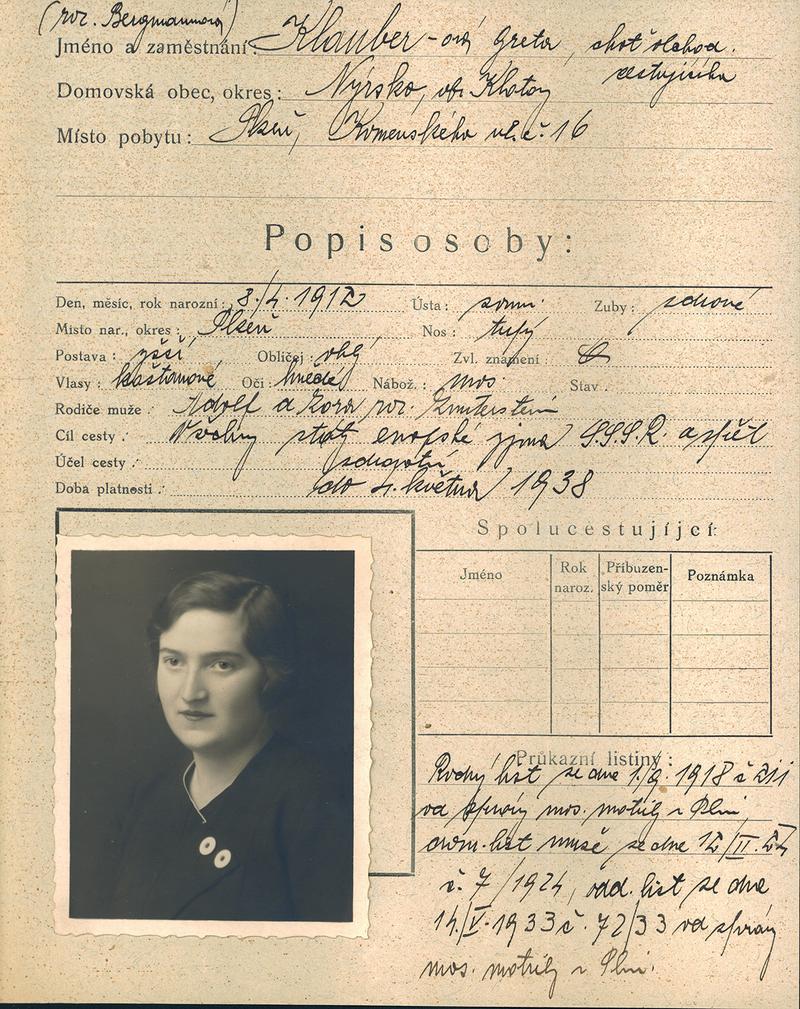 (roz. Bergmannová)
Jméno a zaměstnání: Klauber-ová Greta, choť obchod.
cestujícího
Domovská obec, okres: Nýrsko, ok. Klatovy
Místo pobytu: Plzeň, Komenského ul. č. 16
Popis osoby:
Den, měsíc, rok narození: 3./4. 1912 Ústa: Zuby: zdravé
Místo nar., okres: Plzeň Nos: tupý
Postava: vyšší Obličej: obl. Zvl. znamení:
Vlasy: kaštanové Oči: hnědé Nábož.: mos. Stav:
Rodiče muže: Adolf a roz.
Cíl cesty: Všechny státy evropské vyjma S.S.S.R. a zpět
Účel cesty
Doba platnosti: do 4. května 1938
Spolucestujíjcí
Jméno Rok naroz. Příbuzenský poměr Poznámka
Průkazní listiny:
Rodný list ze dne 1./9. 1918 č.
od správy mos. matriky v Plzni,
dom. list muže ze dne 12/II.
č. 7/1924, odd. list ze dne
14./V. 1933 č. 72/33 od správy
mos. matriky v Plzni.